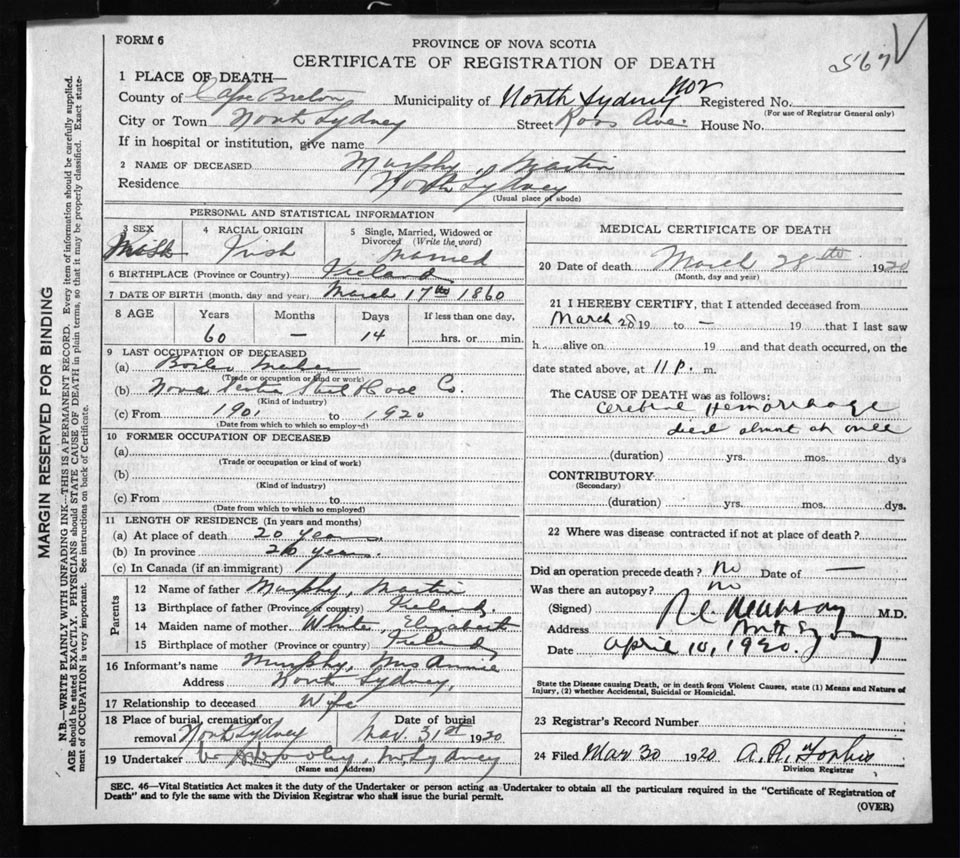 FORM 6
PROVINCE OF NOVA SCOTIA
567
CERTIFICATE OF REGISTRATION OF DEATH
1 PLACE OF DEATH—
County of Cape Breton Municipality of North Sydney Registered No.
(For use of Registrar General only)
City or Town North Sydney Street Ross Ave. House No.
If in hospital or institution, give name
2 NAME OF DECEASED Murphy, Martin
Residence North Sydney
(Usual place of abode)
PERSONAL AND STATISTICAL INFORMATION
3 SEX Male
4 RACIAL ORIGIN Irish
5 Single, Married, Widowed or Divorced (Write the word) Married
6 BIRTHPLACE (Province or Country) Ireland
7 DATE OF BIRTH (month, day and year) March 17th 1860
8 AGE Years Months Days If less than one day,
60 — 14 hrs. or min.
9 LAST OCCUPATION OF DECEASED
(a) Boiler
(Trade or occupation or kind or work)
(b) Nova Scotia Steel & Coal Co.
(Kind of industry)
(c) From 1901 to 1920
(Date from which to which so employed)
10 FORMER OCCUPATION OF DECEASED
(a)
(Trade or occupation or kind of work)
(b)
(Kind of industry)
(c) From to
(Date from which to which so employed)
11 LENGTH OF RESIDENCE (In years and months)
(a) At place of death 20 years.
(b) In province 20 years.
(c) In Canada (if an immigrant)
Parents
12 Name of father Murphy, Martin
13 Birthplace of father (Province or country) Ireland.
14 Maiden name of mother White, Elizabeth
15 Birthplace of mother (Province or country) Ireland
16 Informant's name Murphy, Mrs Annie
Address North Sydney,
17 Relationship to deceased Wife
18 Place of burial, cremation or removal North Sydney Date of burial Mar. 31st 1920
19 Undertaker N. Sydney
(Name and Address)
MEDICAL CERTIFICATE OF DEATH
20 Date of death March 28th 1920
(Month, day and year)
21 I HEREBY CERTIFY, that I attended deceased from
March 28 19 to — 19 that I last saw
h alive on 19 and that death occurred, on the
date stated above, at 11 P. m.
The CAUSE OF DEATH was as follows:
Cerebral Hemorrhage
died almost at once
(duration) yrs. mos. dys
CONTRIBUTORY
(Secondary)
(duration) yrs. mos. dys.
22 Where was disease contracted if not at place of death?
Did an operation precede death? no Date of —
Was there an autopsy? no
(Signed) M.D.
Address North Sydney
Date April 10, 1920.
State the Disease causing Death, or in death from Violent Causes, state (1) Means and Nature of
Injury, (2) whether Accidental, Suicidal or Homicidal.
23 Registrar's Record Number
24 Filed Mar 30 1920 A. R.
Division Registrar
SEC. 46—Vital Statistics Act makes it the duty of the Undertaker or person acting as Undertaker to obtain all the particulars required in the "Certificate of Registration of
Death" and to fyle the same with the Division Registrar who shall issue the burial permit.
(OVER)
MARGIN RESERVED FOR BINDING
N.B.—WRITE PLAINLY WITH UNFADING INK—THIS IS A PERMANENT RECORD. Every item of information should be carefully supplied.
AGE should be stated EXACTLY. PHYSICIANS should STATE CAUSE OF DEATH in plain terms, so that it may be properly classified. Exact statement of OCCUPATION is very important. See instructions on back of Certificate.